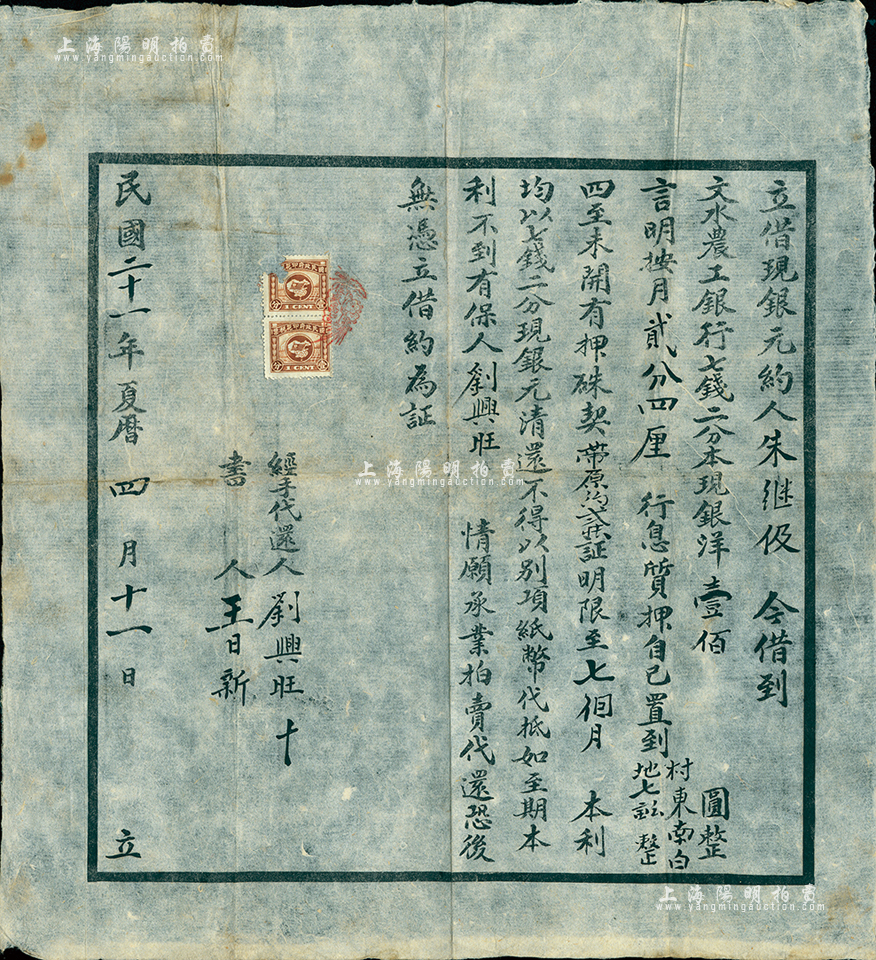 立借現銀元約人朱继伋 今借到
文水農工銀行七錢二分本現銀洋壹佰 圓整
言明按月貳分四厘 行息質押自己置到村東南白地七畝整
四至未開有押硃契帶原約弍張証明限至七個月 本利
均以七錢二分現銀元清還不得以別項紙幣代抵如至期本
利不到有保人劉興旺 情願承業拍賣代還恐後
無憑立借約為証
經手代還人 劉興旺 十
書 人 王日新
民國二十一年夏曆 四 月 十一 日 立
上海陽明拍賣
www.yangmingauction.com
上海陽明拍賣
www.yangmingauction.com
上海陽明拍賣
www.yangmingauction.com